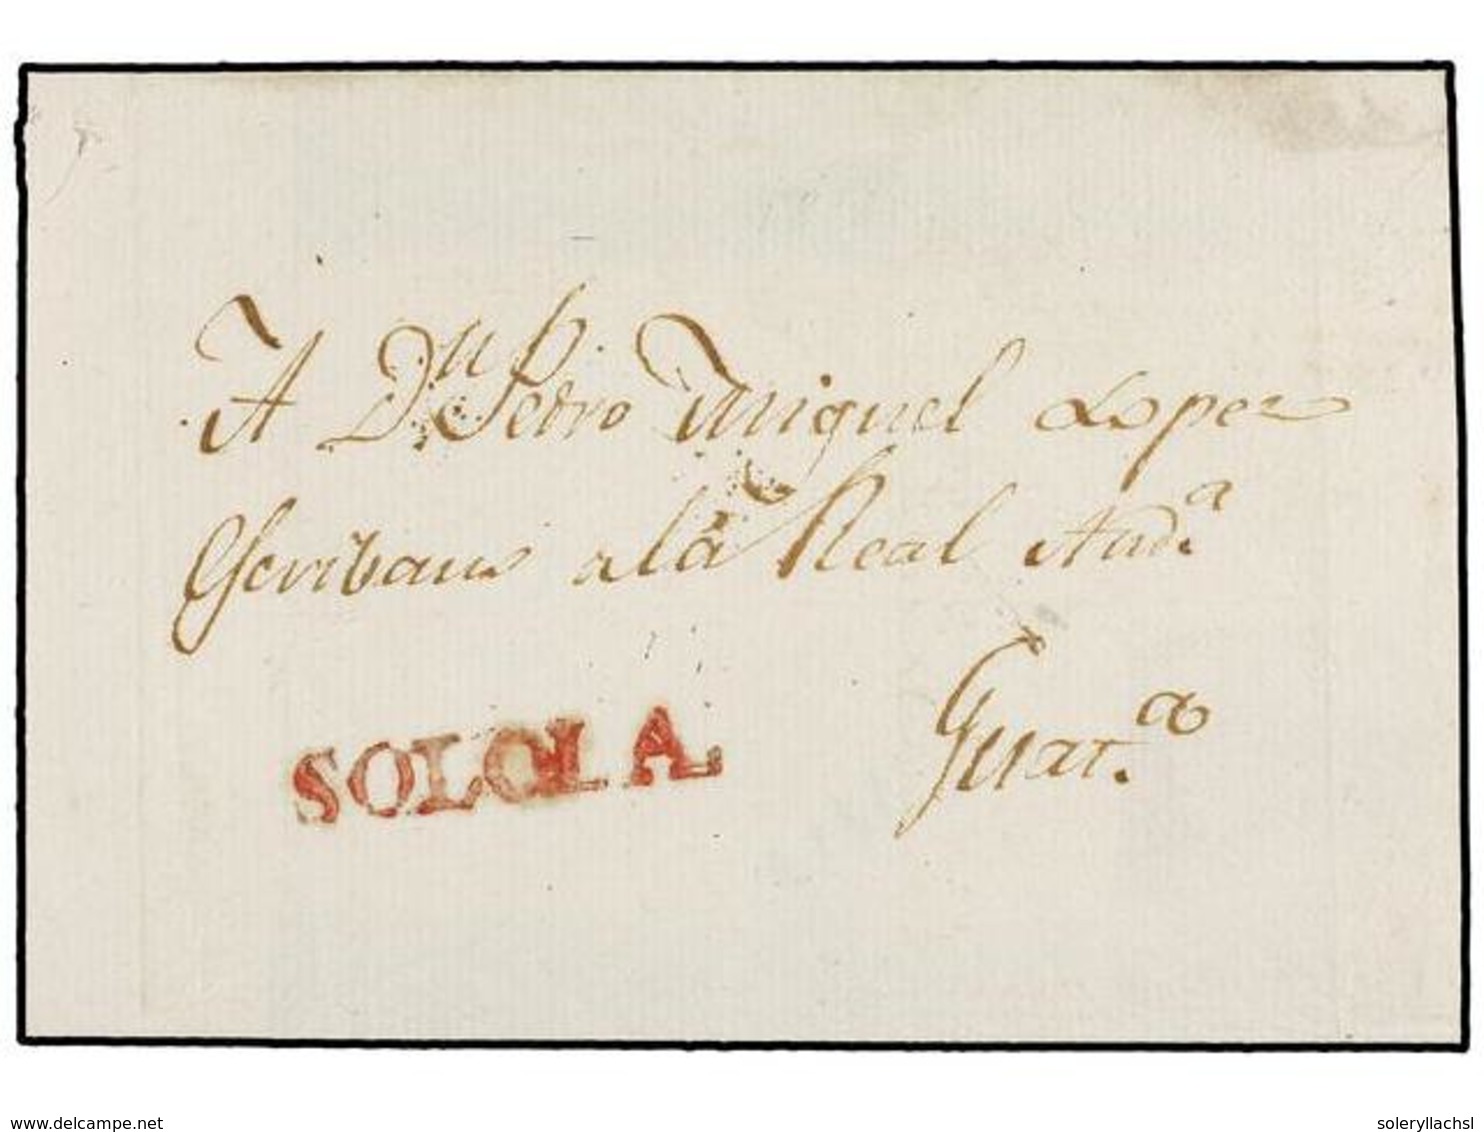 A Dn Pedro Miguel Lopez
Escribano a la Real Auda
Guata
SOLOLA.
www.delcampe.net
soleryllachsl